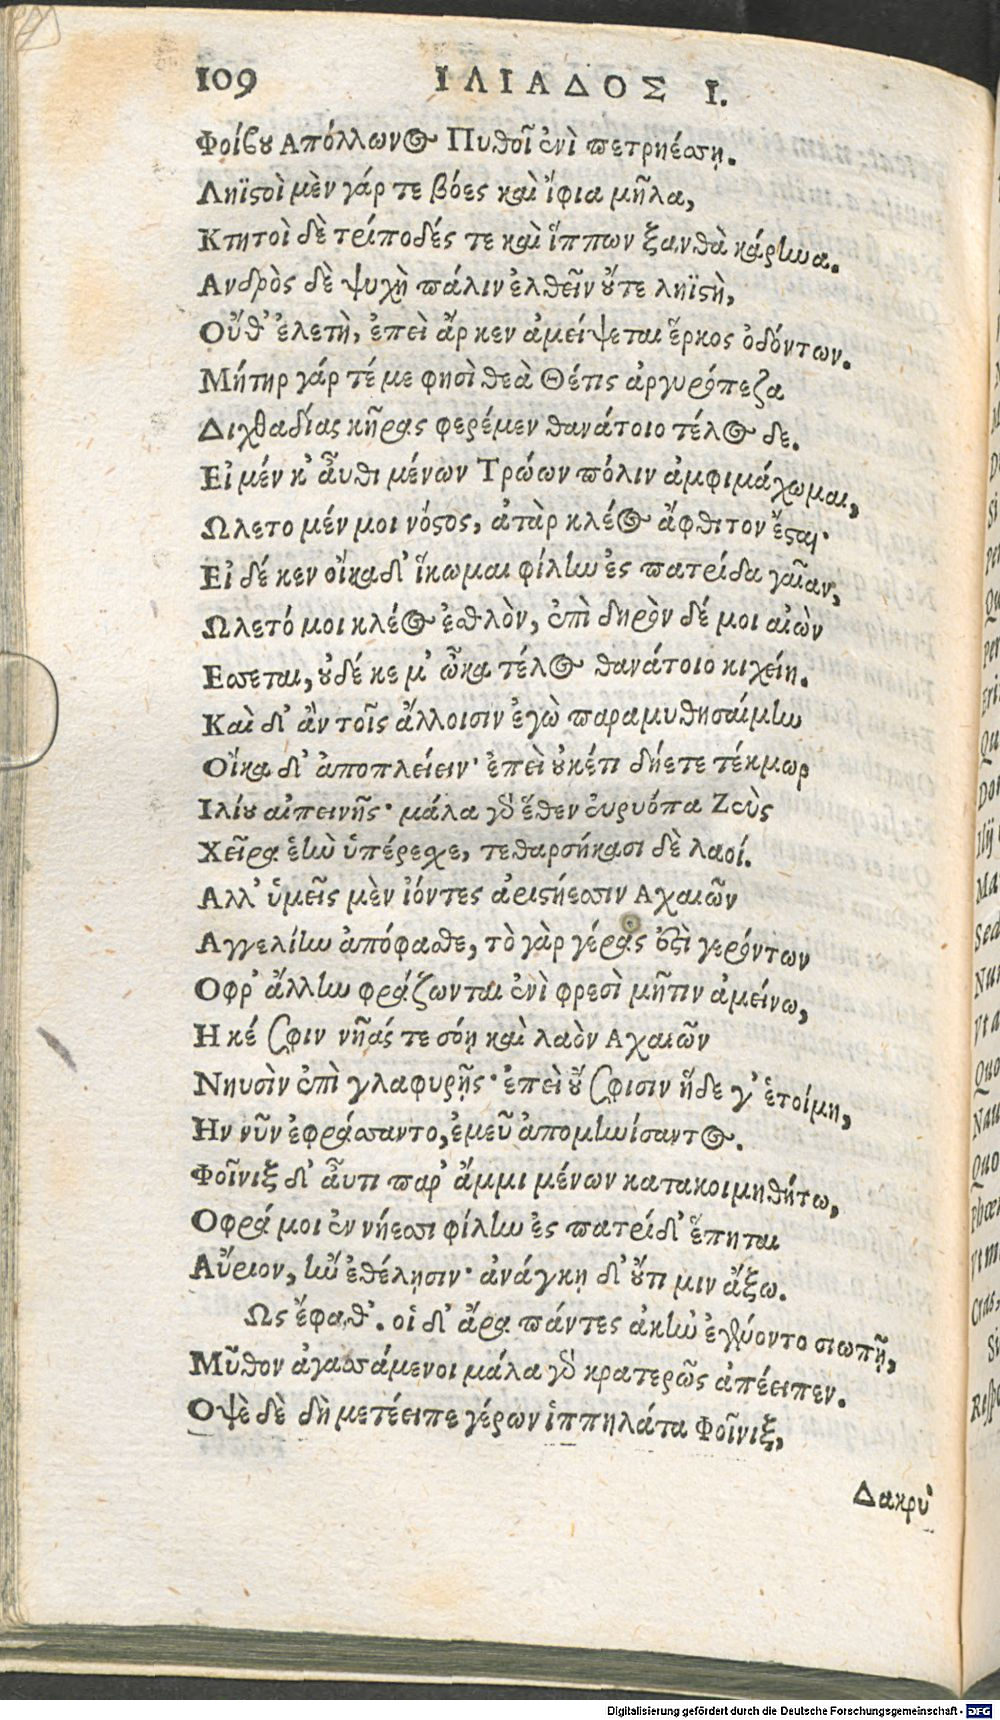 109 ΙΛΙΑΔΟΣ Ι.
Φοίβου Απόλλωνος Πυθοῖ ἐνὶ πετρηέσσῃ.
Ληϊστοὶ μὲν γάρ τε βόες καὶ ἴφια μῆλα,
Κτητοὶ δὲ τρίποδές τε καὶ ἵππων ξανθὰ κάρηνα.
Ανδρὸς δὲ ψυχὴ πάλιν ἐλθεῖν οὔτε ληϊστὴ,
Οὔθ' ἑλετὴ, ἐπεὶ ἄρ κεν ἀμείψεται ἕρκος ὀδόντων.
Μήτηρ γάρ τέ με φησὶ θεὰ Θέτις ἀργυρόπεζα
Διχθαδίας κῆρας φερέμεν θανάτοιο τέλος δε.
Εἰ μέν κ' αὖθι μένων Τρώων πόλιν ἀμφιμάχωμαι,
Ωλετο μέν μοι νόστος, ἀτὰρ κλέος ἄφθιτον ἔσται·
Εἰ δέ κεν οἴκαδ' ἵκωμαι φίλην ἐς πατρίδα γαῖαν,
Ωλετό μοι κλέος ἐσθλὸν, ἐπὶ δηρὸν δέ μοι αἰὼν
Εσσεται, οὐδέ κε μ' ὦκα τέλος θανάτοιο κιχείη.
Καὶ δ' ἂν τοῖς ἄλλοισιν ἐγὼ παραμυθησαίμην
Οἴκαδ' ἀποπλείειν· ἐπεὶ οὐκέτι δήετε τέκμωρ
Ιλίου αἰπεινῆς· μάλα γάρ ἕθεν εὐρυόπα Ζεὺς
Χεῖρα ἑὴν ὑπέρεχε, τεθαρσήκασι δὲ λαοί.
Αλλ' ὑμεῖς μὲν ἰόντες ἀριστήεσσιν Αχαιῶν
Αγγελίην ἀπόφασθε, τὸ γὰρ γέρας ἐστὶ γερόντων
Οφρ' ἄλλην φράζωνται ἐνὶ φρεσὶ μῆτιν ἀμείνω,
Η κέ σφιν νῆάς τε σόῃ καὶ λαὸν Αχαιῶν
Νηυσὶν ἐπὶ γλαφυρῇς· ἐπεὶ οὔ σφισιν ἥδε γ' ἑτοίμη,
Ην νῦν ἐφράσσαντο, ἐμεῦ ἀπομηνίσαντος.
Φοῖνιξ δ' αὖτι παρ' ἄμμι μένων κατακοιμηθήτω,
Οφρά μοι ἐν νήεσσι φίλην ἐς πατρίδ' ἕπηται
Αὔριον, ἢν ἐθέλῃσιν· ἀνάγκῃ δ' οὔτι μιν ἄξω.
Ως ἔφαθ'. οἱ δ' ἄρα πάντες ἀκὴν ἐγένοντο σιωπῇ,
Μῦθον ἀγασσάμενοι μάλα γάρ κρατερῶς ἀπέειπεν.
Οψὲ δὲ δὴ μετέειπε γέρων ἱππηλάτα Φοῖνιξ,
Δακρυ'
Digitalisierung gefördert durch die Deutsche Forschungsgemeinschaft - DFG